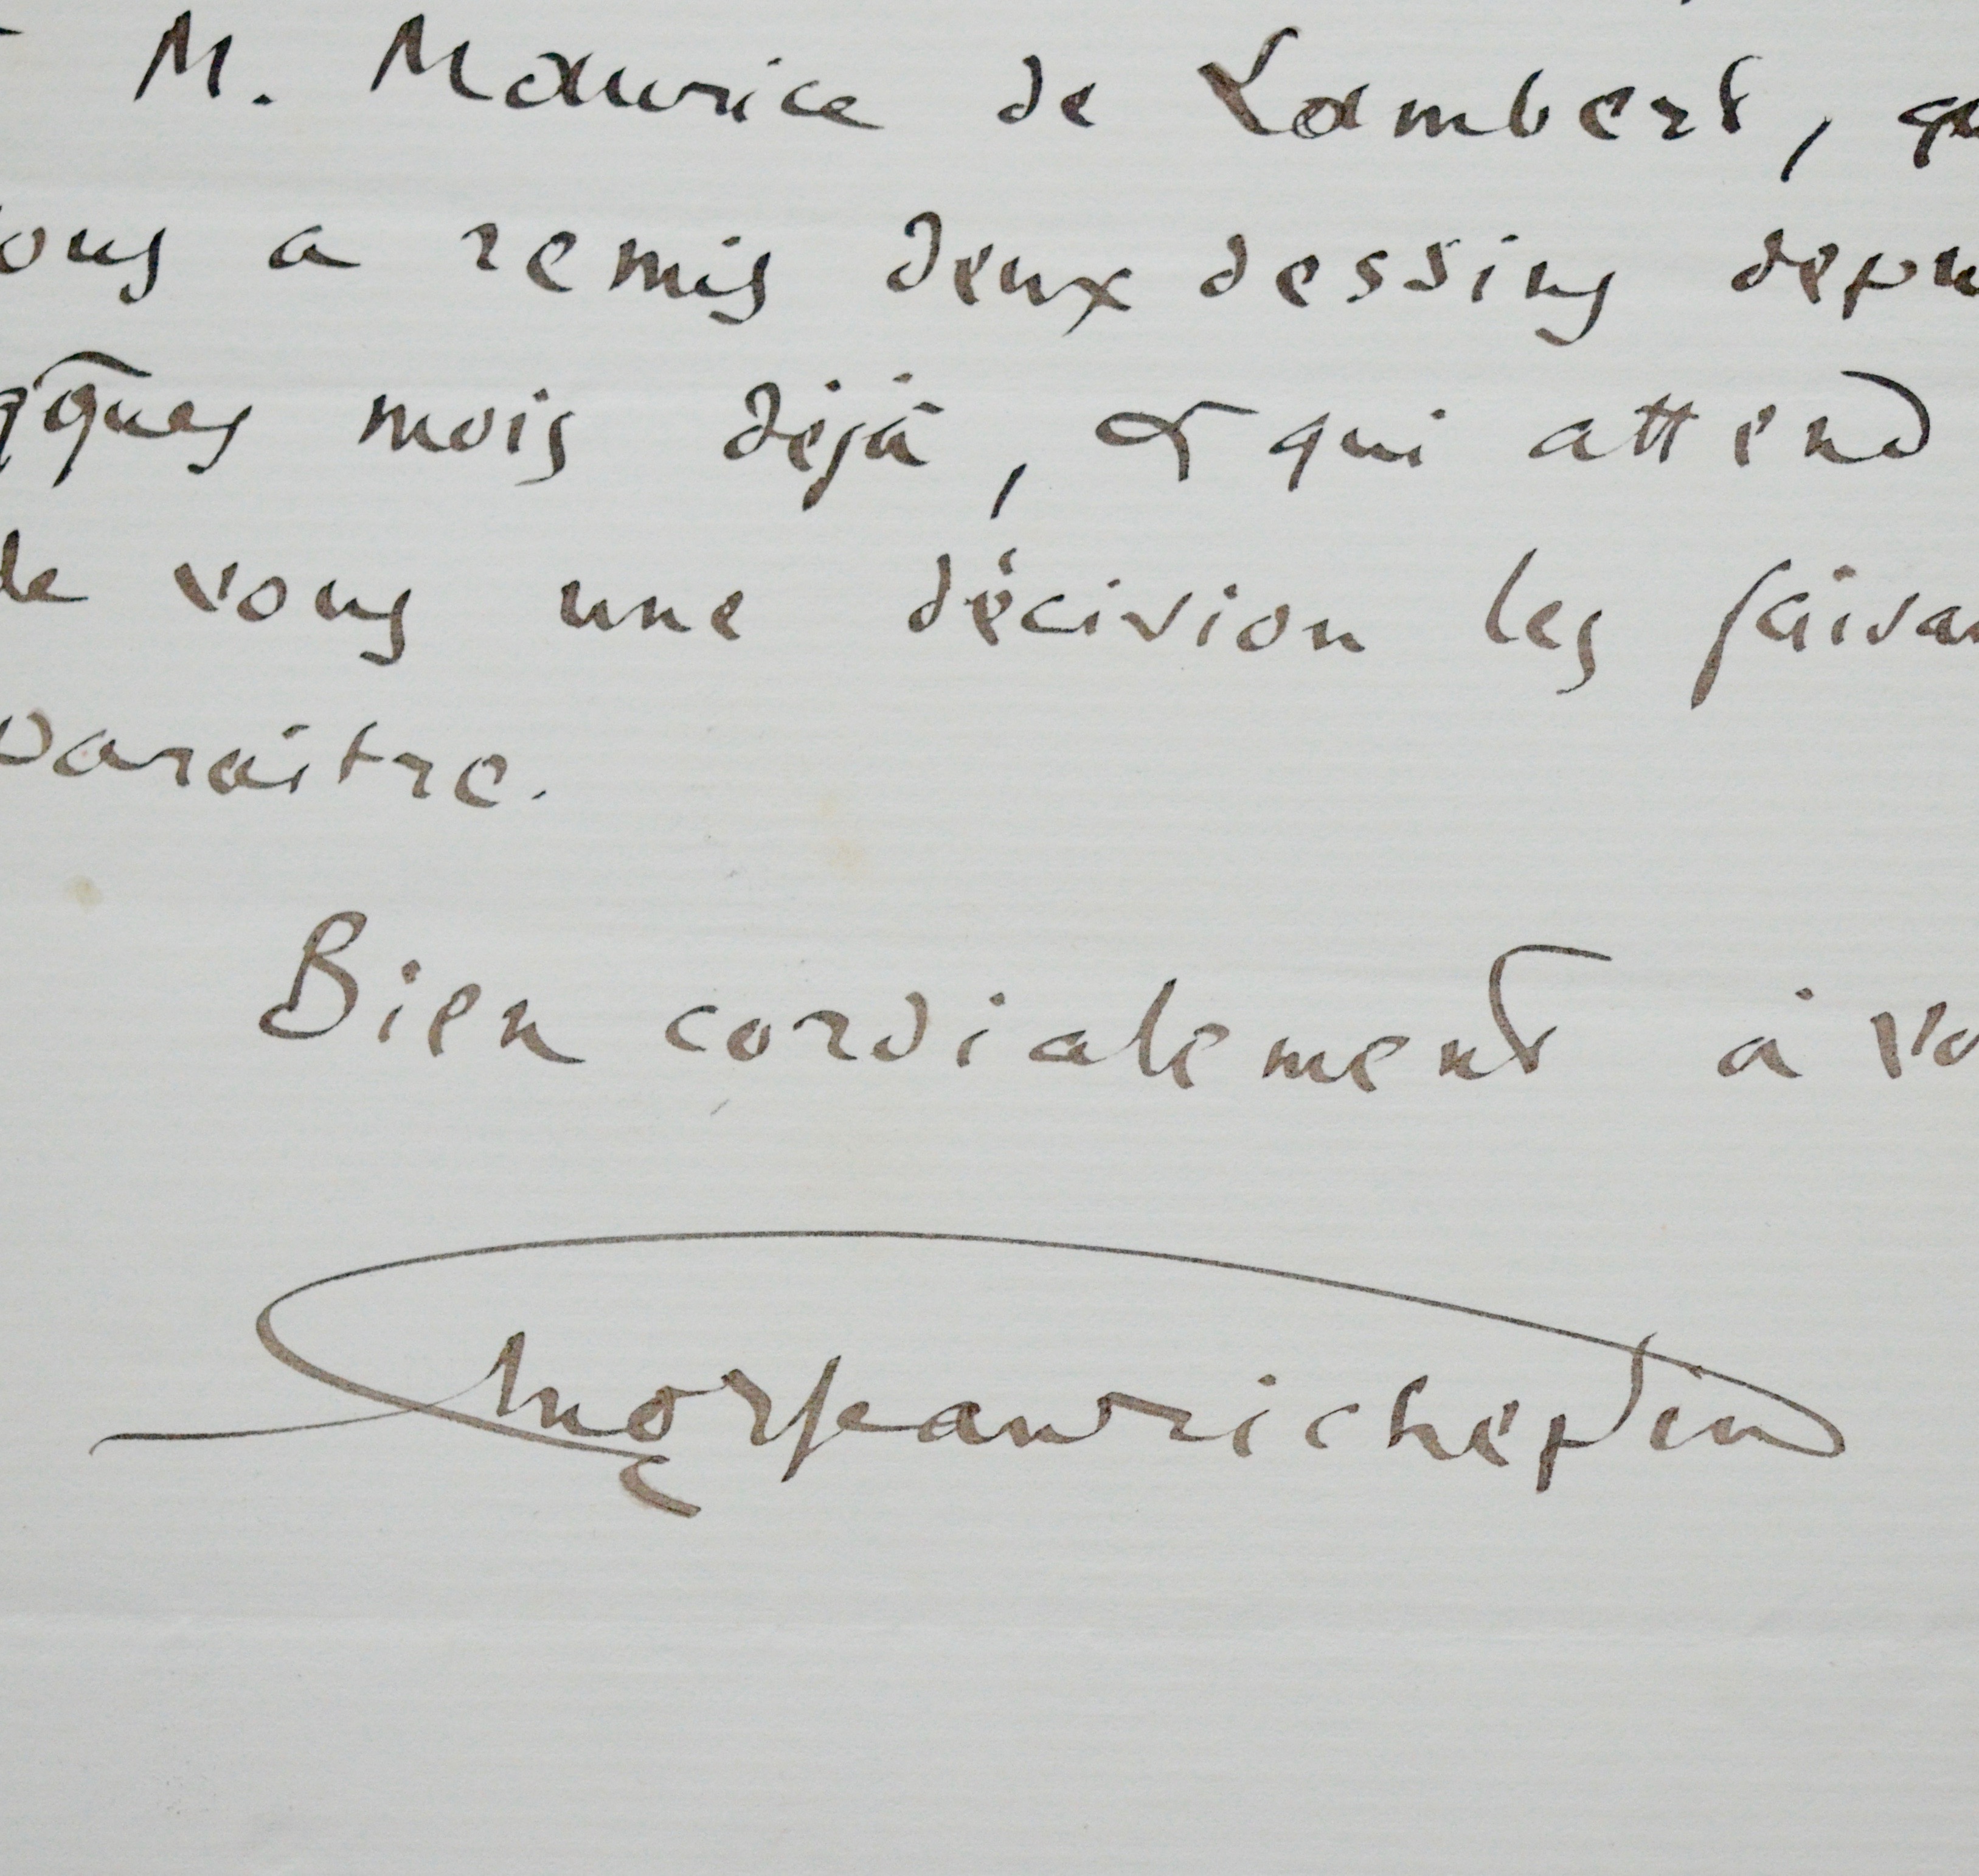 M. Maurice de Lambert, qu
ous a remis deux dessins depu
qques mois déjà, & qui attend
de vous une décision les faisan
paraitre.
Bien cordialement à vo
Jean richepin